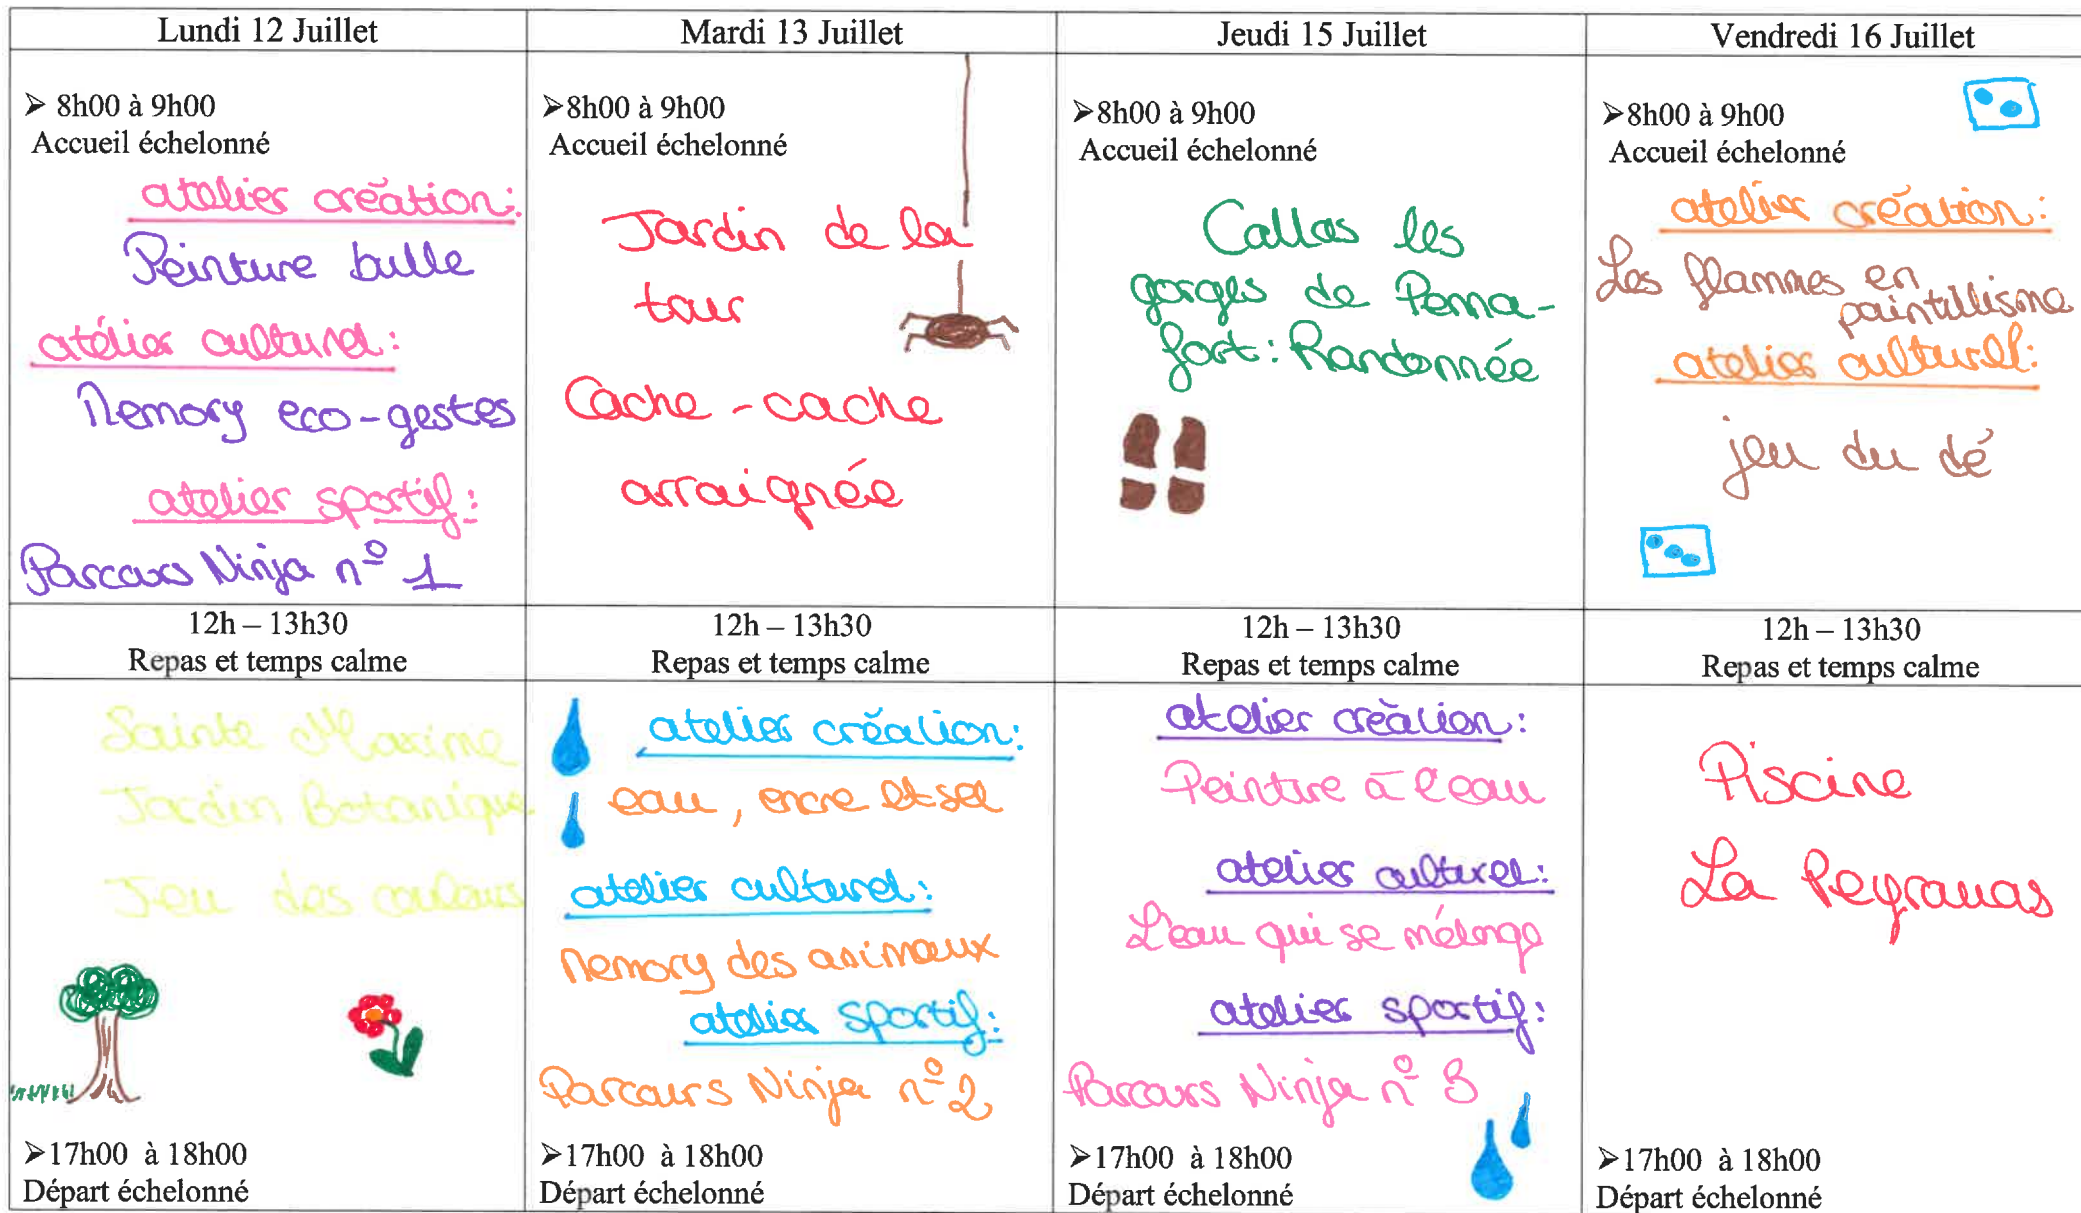 Lundi 12 Juillet
Mardi 13 Juillet
Jeudi 15 Juillet
Vendredi 16 Juillet
➢ 8h00 à 9h00
Accueil échelonné
atelier création:
Peinture bulle
atélier culturel:
Memory eco-gestes
atelier sportif:
Parcours Ninja n° 1
➢8h00 à 9h00
Accueil échelonné
Jardin de la
tour
Cache-cache
arraignée
➢8h00 à 9h00
Accueil échelonné
Callas les
gorges de Penna-
fort: Randonnée
➢8h00 à 9h00
Accueil échelonné
atelier création:
Les flammes en
pointillisme
atelier culturel:
jeu du dé
12h – 13h30
Repas et temps calme
12h – 13h30
Repas et temps calme
12h – 13h30
Repas et temps calme
12h – 13h30
Repas et temps calme
Sainte Maxime
Jardin Botanique
Jeu des couleurs
➢17h00 à 18h00
Départ échelonné
atelier création:
eau, encre et sel
atelier culturel:
Memory des animaux
atelier sportif:
Parcours Ninja n°2
➢17h00 à 18h00
Départ échelonné
atelier création:
Peinture à l'eau
atelier culturel:
L'eau qui se mélange
atelier sportif:
Parcours Ninja n° 3
➢17h00 à 18h00
Départ échelonné
Piscine
La Peyrouas
➢17h00 à 18h00
Départ échelonné